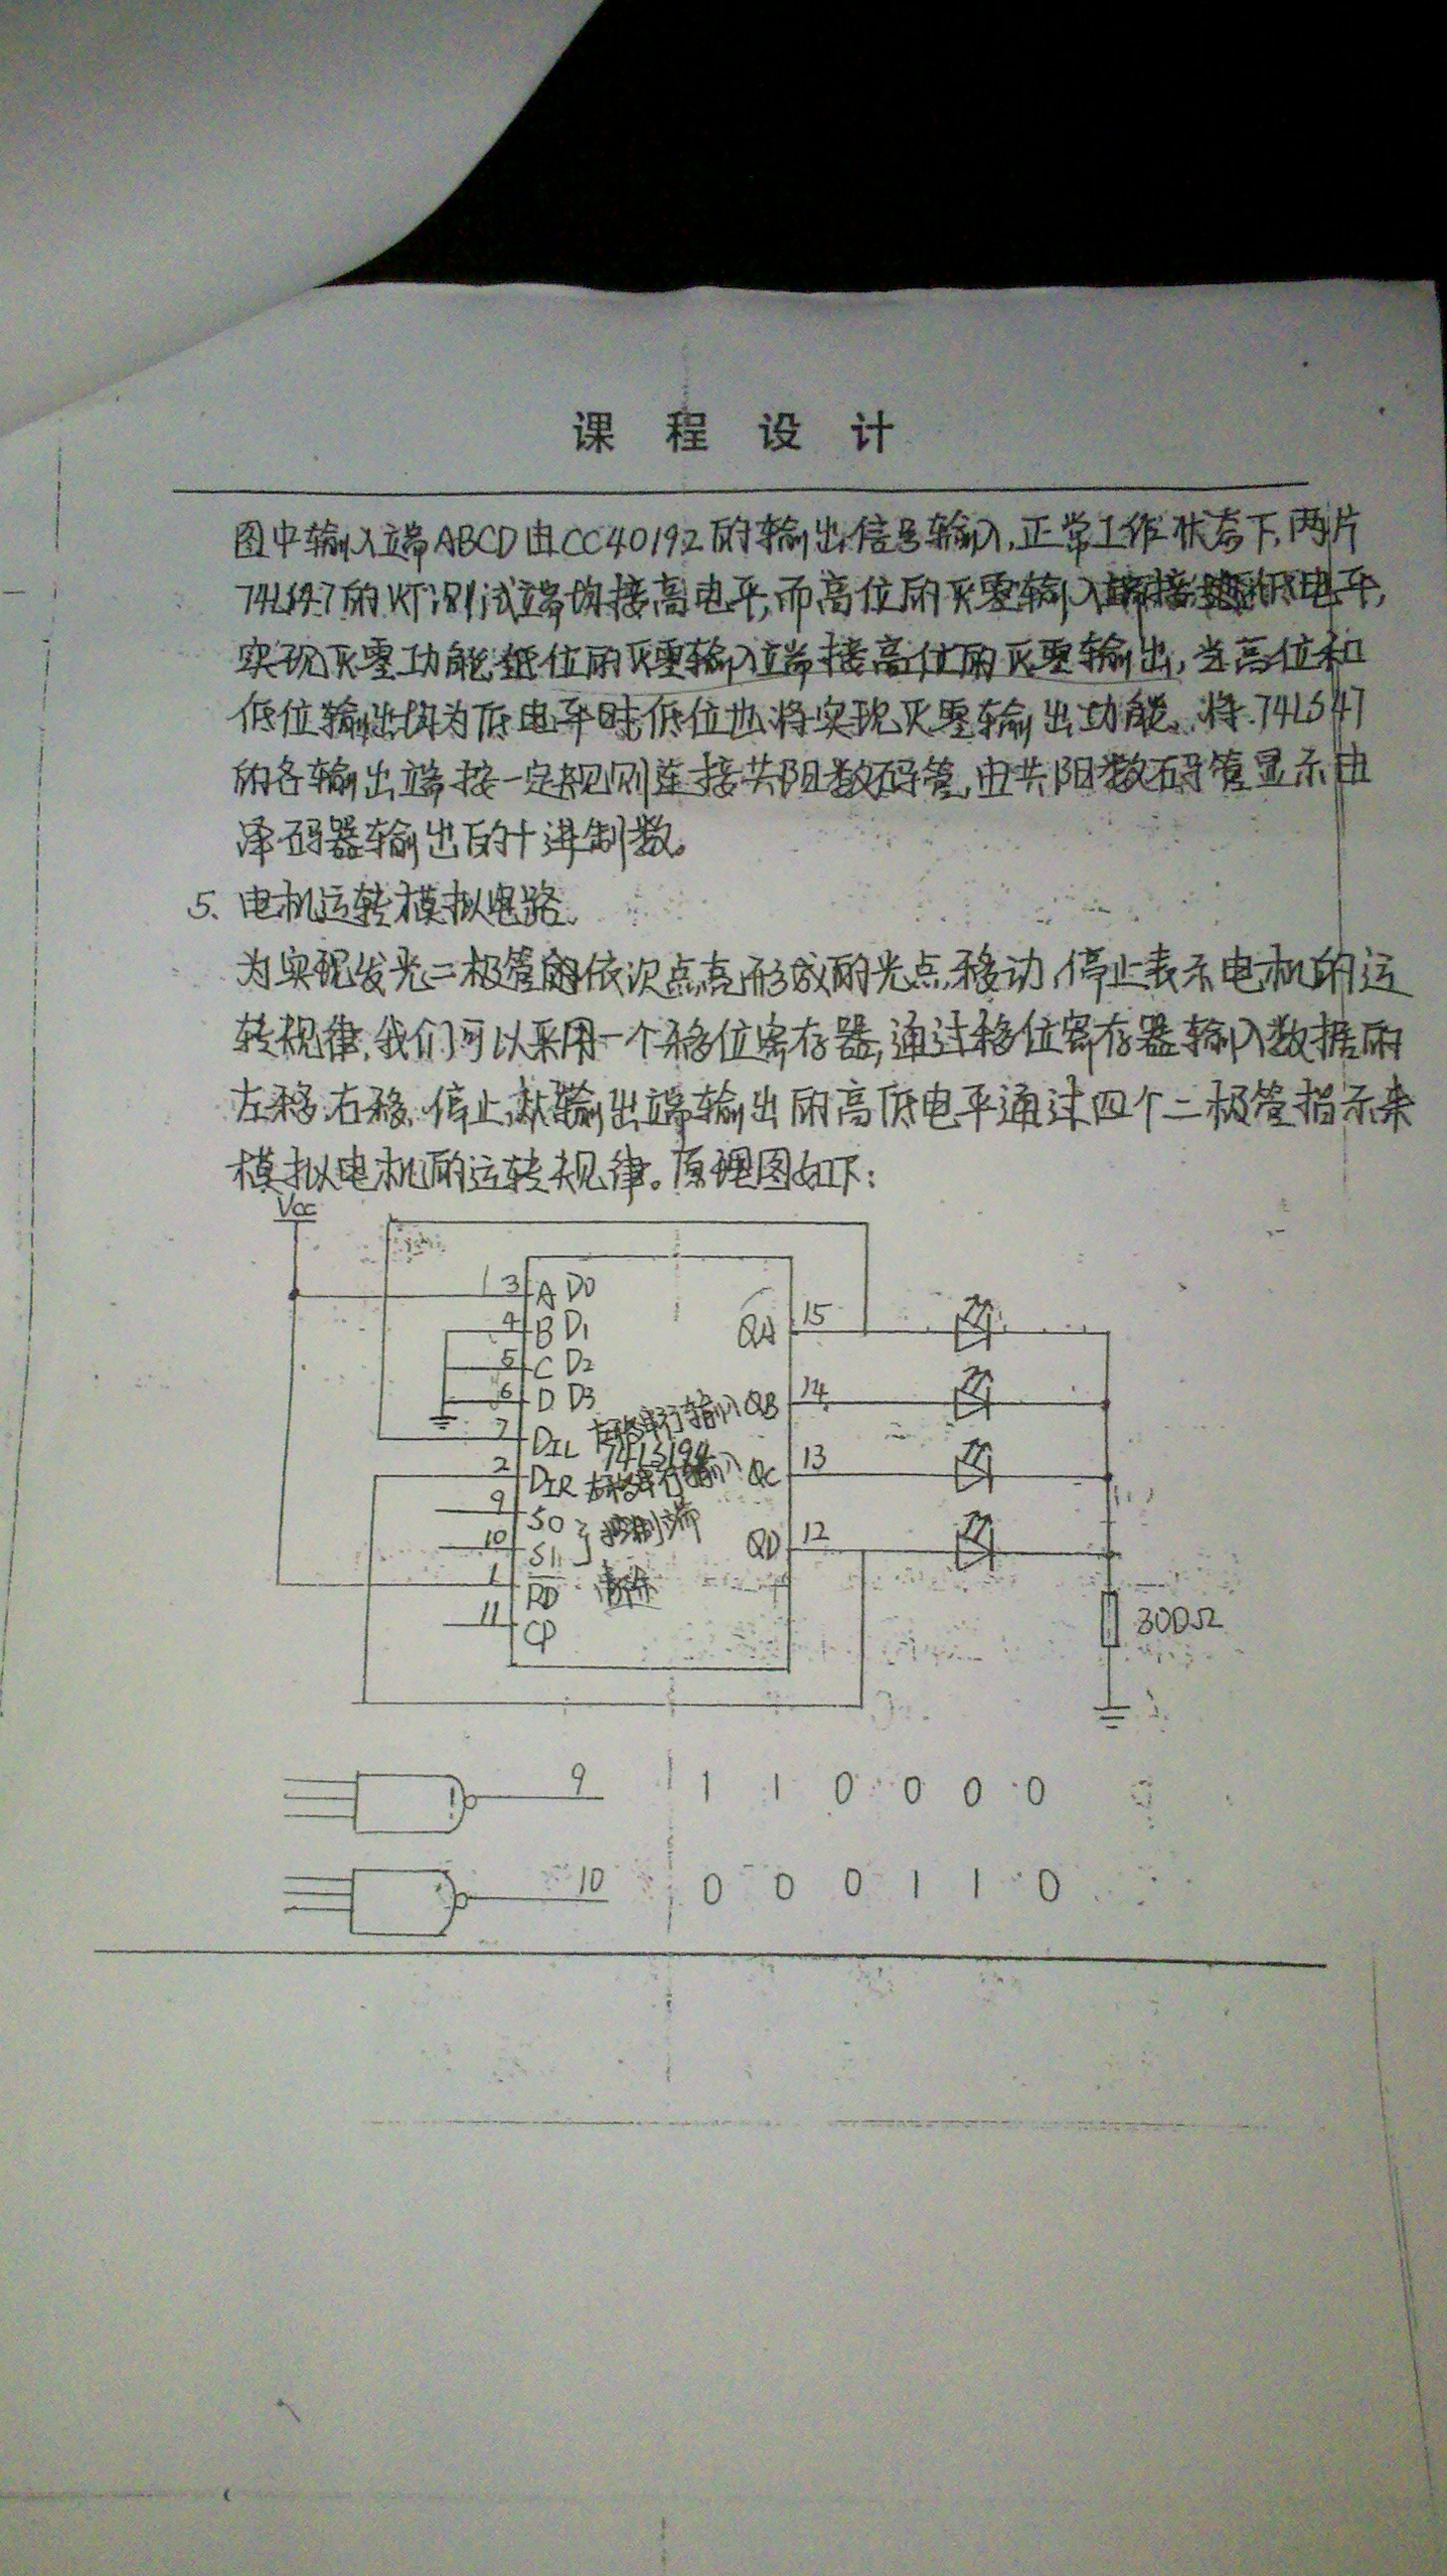 课 程 设 计
图中输入端ABCD由CC40192的输出信号输入,正常工作状态下,两片
74LS47的灯测试端均接高电平,而高位的灭零输入端接低电平,
实现灭零功能,低位的灭零输入端接高位的灭零输出,当高位和
低位输出均为低电平时,低位也将实现灭零输出功能。将74LS47
的各输出端按一定规则连接共阳数码管,由共阳数码管显示由
译码器输出的十进制数。
5、电机运转模拟电路。
为实现发光二极管的依次点亮形成的光点移动、停止表示电机的运
转规律,我们可以采用一个移位寄存器,通过移位寄存器输入数据的
左移、右移、停止,从输出端输出的高低电平通过四个二极管指示来
模拟电机的运转规律。原理图如下:
Vcc
3 A D0
4 B D1
QA 15
5 C D2
6 D D3
QB 14
7 DIL 左移串行输入
74LS194
2 DIR 右移串行输入
QC 13
9 S0
10 S1 } 控制端
QD 12
1 RD
11 CP
300Ω
9 1 1 0 0 0 0
10 0 0 0 1 1 0